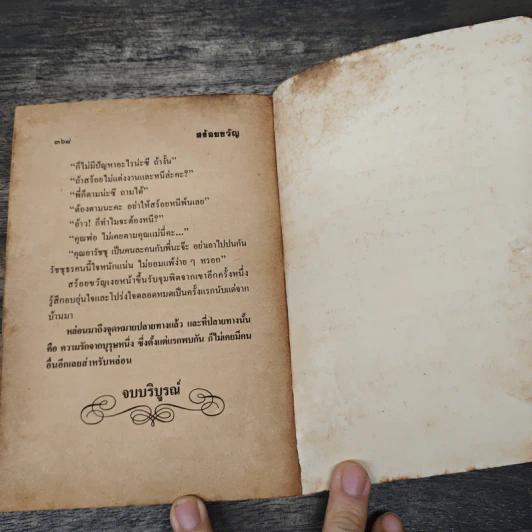 ๓๖๘
สร้อยขวัญ
“ก็ไม่มีปัญหาอะไรน่ะซี ถ้างั้น”
“ถ้าสร้อยไม่แต่งงานและหนีล่ะคะ?”
“พี่ก็ตามน่ะซี ถามได้”
“ต้องตามนะคะ อย่าให้สร้อยหนีพ้นเลย”
“อ้าว! ก็ทำไมจะต้องหนี?”
“คุณพ่อ ไม่เคยตามคุณแม่นี่คะ...”
“คุณอารัชชุ เป็นคนละคนกับพี่นะจ๊ะ อย่าเอาไปปนกัน
รัชชุธรคนนี้ใจหนักแน่น ไม่ยอมแพ้ง่าย ๆ หรอก”
สร้อยขวัญเงยหน้าขึ้นรับจุมพิตจากเขาอีกครั้งหนึ่ง
รู้สึกอบอุ่นใจและโปร่งใจตลอดหมดเป็นครั้งแรกนับแต่จาก
บ้านมา
หล่อนมาถึงจุดหมายปลายทางแล้ว และที่ปลายทางนั้น
คือ ความรักจากบุรุษหนึ่ง ซึ่งตั้งแต่แรกพบกัน ก็ไม่เคยมีคน
อื่นอีกเลยสำหรับหล่อน
จบบริบูรณ์